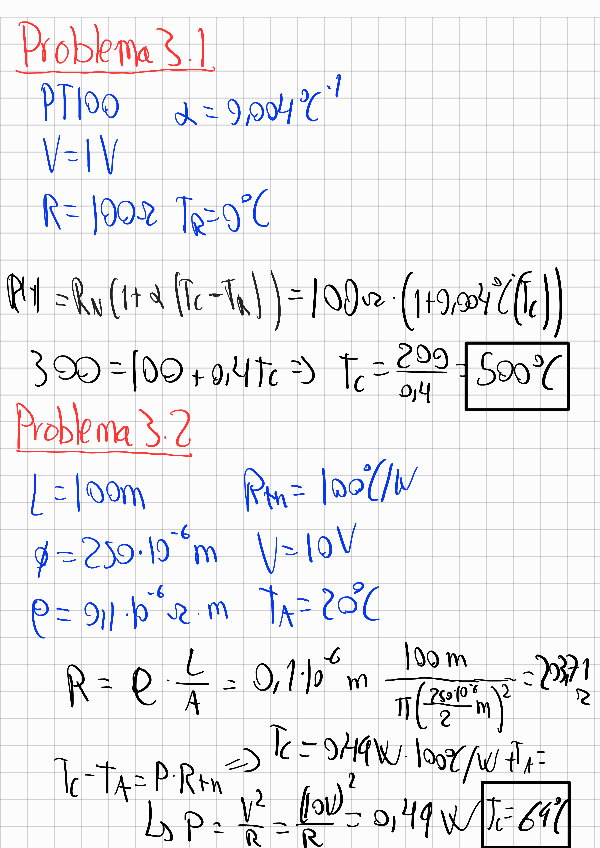 Problema 3.1
PT100 α = 0,004°C⁻¹
V = 1V
R = 100Ω T_R = 0°C
= R_N (1 + α (T_C - T_R)) = 100Ω · (1 + 0,004°C (T_C))
300 = 100 + 0,4T_C => T_C = 200/0,4 = 500°C
Problema 3.2
L = 100m R_th = 100°C/W
φ = 250·10⁻⁶ m V = 10V
ρ = 0,1·10⁻⁶ Ω·m T_A = 20°C
R = ρ · L/A = 0,1·10⁻⁶ m 100m/(π(250·10⁻⁶/2 m)²) = 203,71 Ω
T_C - T_A = P·R_th => T_C = 0,49W·100°C/W + T_A =
↳ P = V²/R = (10V)²/R = 0,49W T_C = 69°C